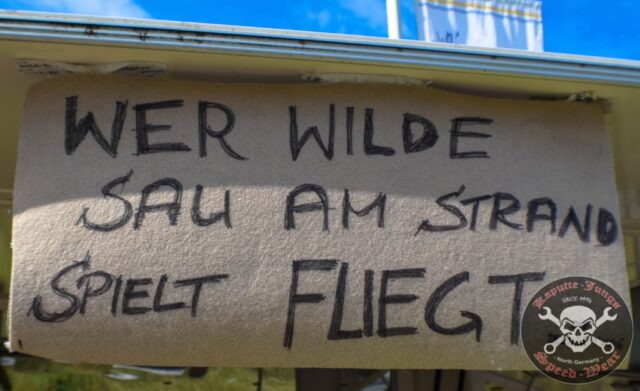 WER WILDE
SAU AM STRAND
SPIELT FLIEGT
Kaputte-Jungs
SINCE 1994
North Germany
Speed-Wear